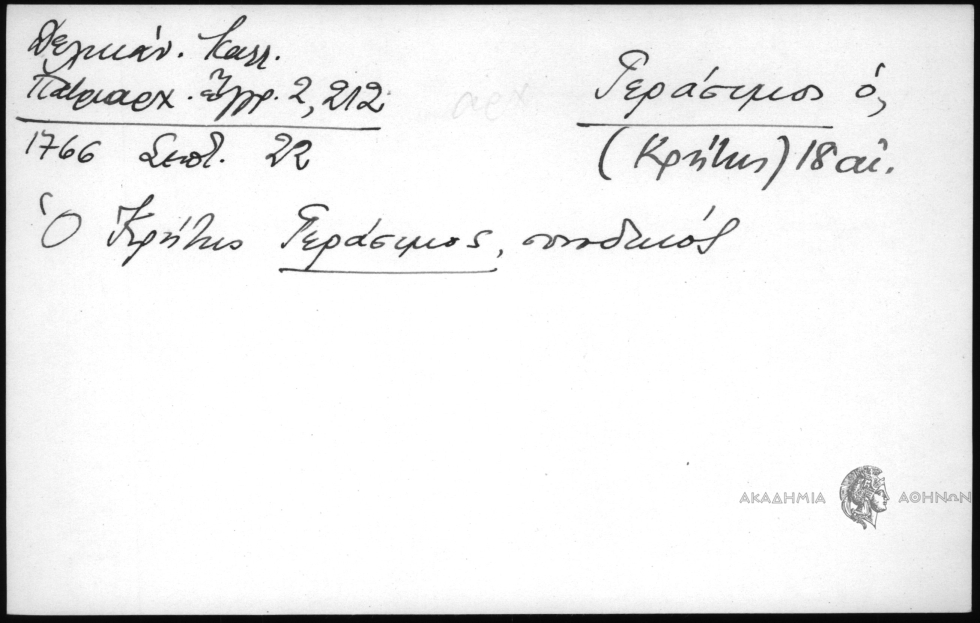 Δελικάν. Καλλ.
Πατριαρχ. Ἔγγρ. 2, 212
1766 Σεπτ. 22
Γεράσιμος ὁ,
(Κρήτης) 18 αἰ.
Ὁ Κρήτης Γεράσιμος, συνοδικός
ΑΚΑΔΗΜΙΑ ΑΘΗΝΩΝ